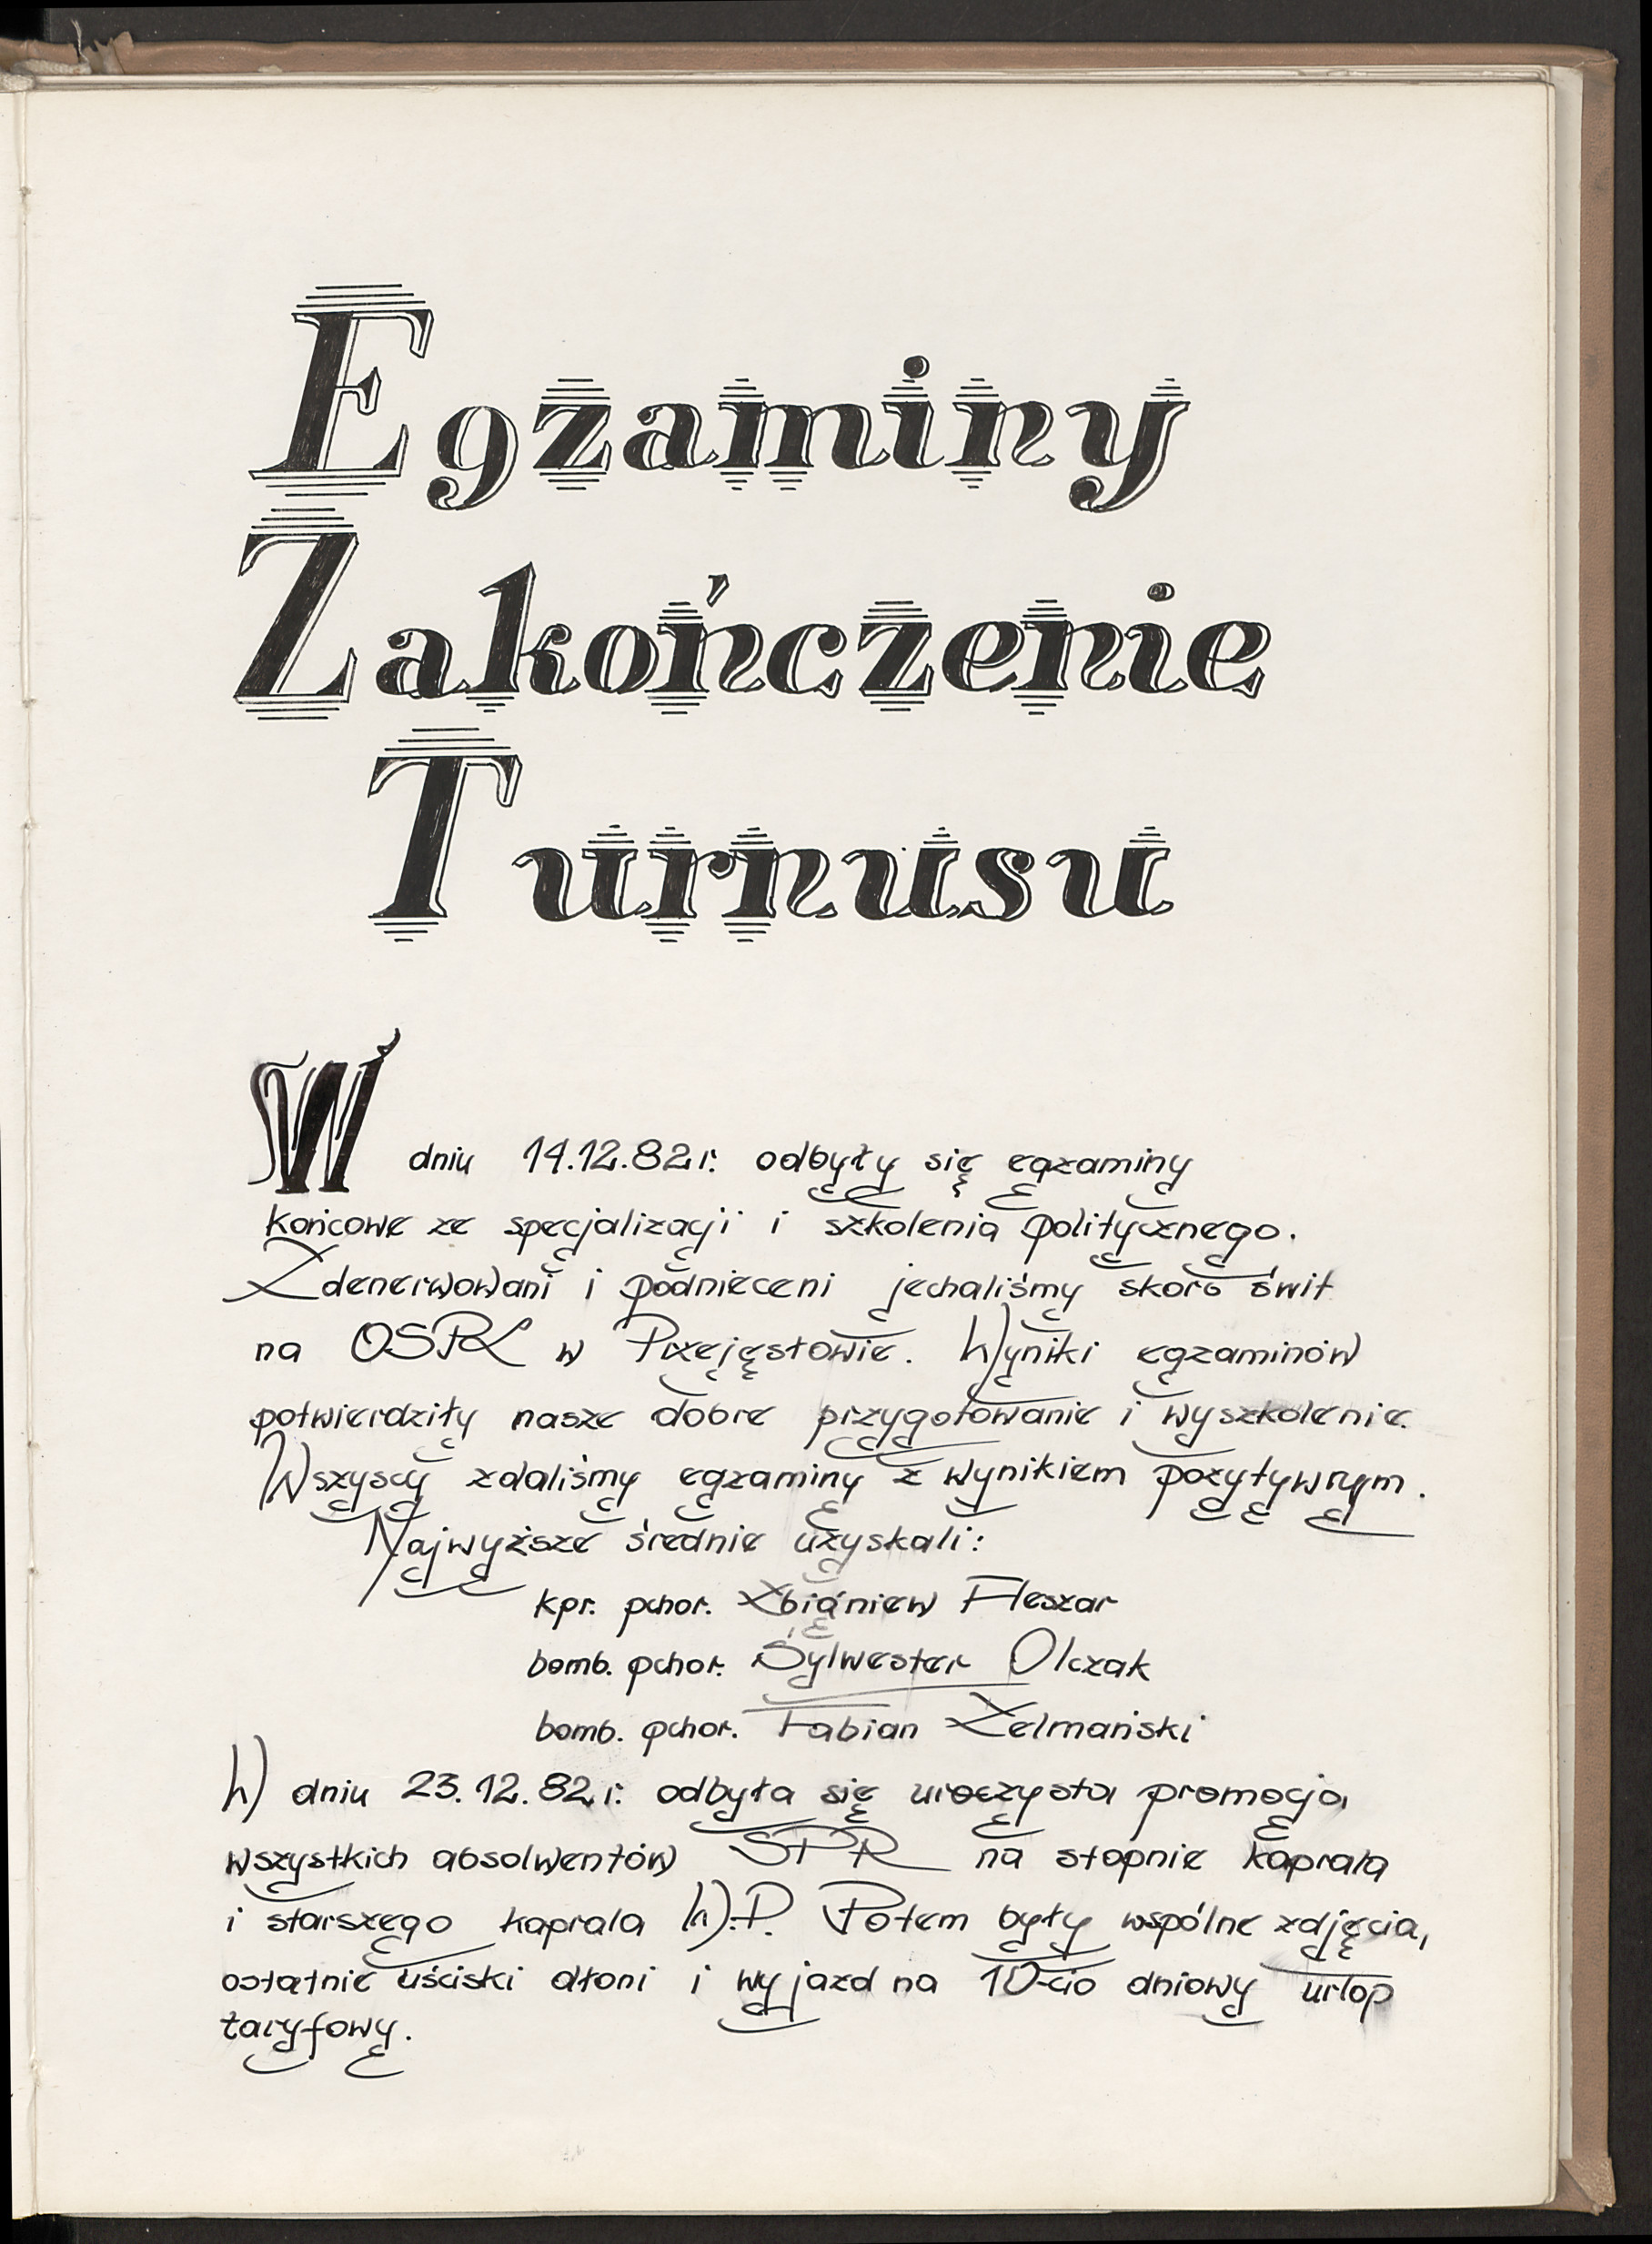 Egzaminy
Zakończenie
Turnusu
W dniu 14.12.82r. odbyły się egzaminy
końcowe ze specjalizacji i szkolenia politycznego.
Zdenerwowani i podnieceni jechaliśmy skoro świt
na OSPŁ w Przejęsłowie. Wyniki egzaminów
potwierdziły nasze dobre przygotowanie i wyszkolenie.
Wszyscy zdaliśmy egzaminy z wynikiem pozytywnym.
Najwyższe średnie uzyskali:
kpr. pchor. Zbigniew Fleszar
bomb. pchor. Sylwester Olczak
bomb. pchor. Fabian Zelmański
W dniu 23.12.82r. odbyła się uroczysta promocja
wszystkich absolwentów SPR na stopnie kaprala
i starszego kaprala W.P. Potem były wspólne zdjęcia,
ostatnie uściski dłoni i wyjazd na 10-cio dniowy urlop
taryfowy.